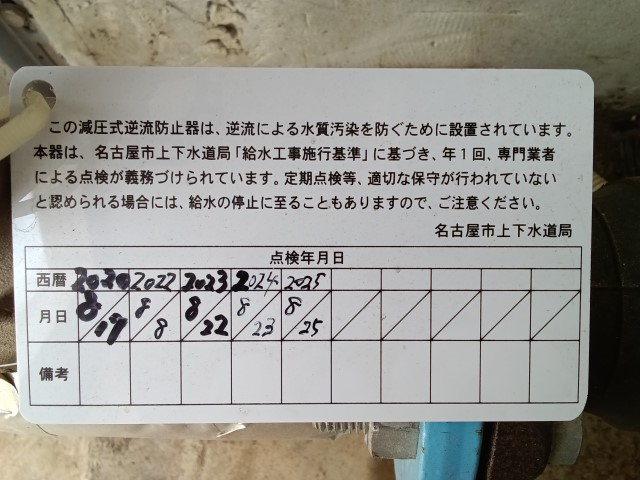 この減圧式逆流防止器は、逆流による水質汚染を防ぐために設置されています。
本器は、名古屋市上下水道局「給水工事施行基準」に基づき、年1回、専門業者
による点検が義務づけられています。定期点検等、適切な保守が行われていない
と認められる場合には、給水の停止に至ることもありますので、ご注意ください。
名古屋市上下水道局
点検年月日
西暦 2020 2022 2023 2024 2025
月日 8/19 8/8 8/22 8/23 8/25
備考